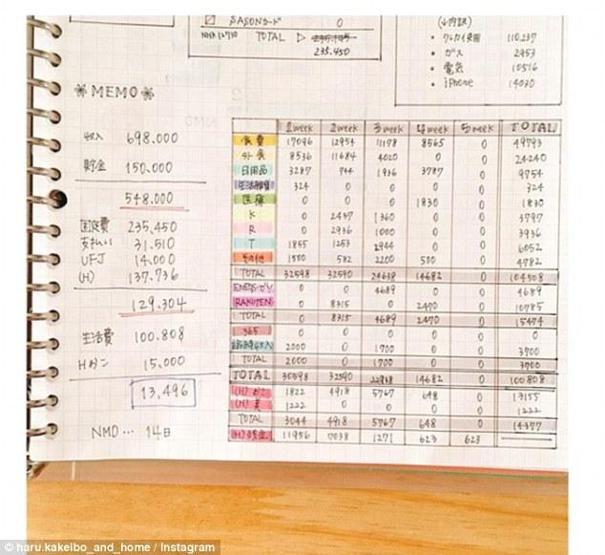 SAISONカード 0
NMD 12/10 TOTAL ▷
235.450
(内訳)
・ 110.237
・ ガス 2953
・ 電気 10516
・ iPhone 14030
❊ MEMO ❊
収入 698.000
貯金 150.000
548.000
固定費 235,450
支払い 31.510
UFJ 14.000
(H) 137.736
129.304
生活費 100.808
Hおこ 15,000
13,496
NMD … 14日
1week 2week 3week 4week 5week TOTAL
食費 17096 12954 11178 8565 0 49793
外食 8536 11684 4020 0 0 24240
日用品 3287 744 1936 3787 0 9754
324 0 0 0 0 324
医療 0 0 0 1830 0 1830
K 0 2437 1360 0 0 3797
R 0 2936 1000 0 0 3936
T 1855 1253 2944 0 0 6052
その他 1500 582 2200 500 0 4782
TOTAL 32598 32590 24638 14682 0 104508
0 0 4689 0 0 4689
RAKUTEN 0 8315 0 2470 0 10785
TOTAL 0 8315 4689 2470 0 15474
365 0 0 0 0 0 0
2000 0 1700 0 0 3700
TOTAL 2000 0 1700 0 0 3700
TOTAL 30598 32590 22938 14682 0 100808
(H) おこ 1822 4918 5767 648 0 13155
(H) 1222 0 0 0 0 1222
TOTAL 3044 4918 5767 648 0 14377
(H) 残金 11956 7038 1271 623 623
© haru.kakeibo_and_home / Instagram